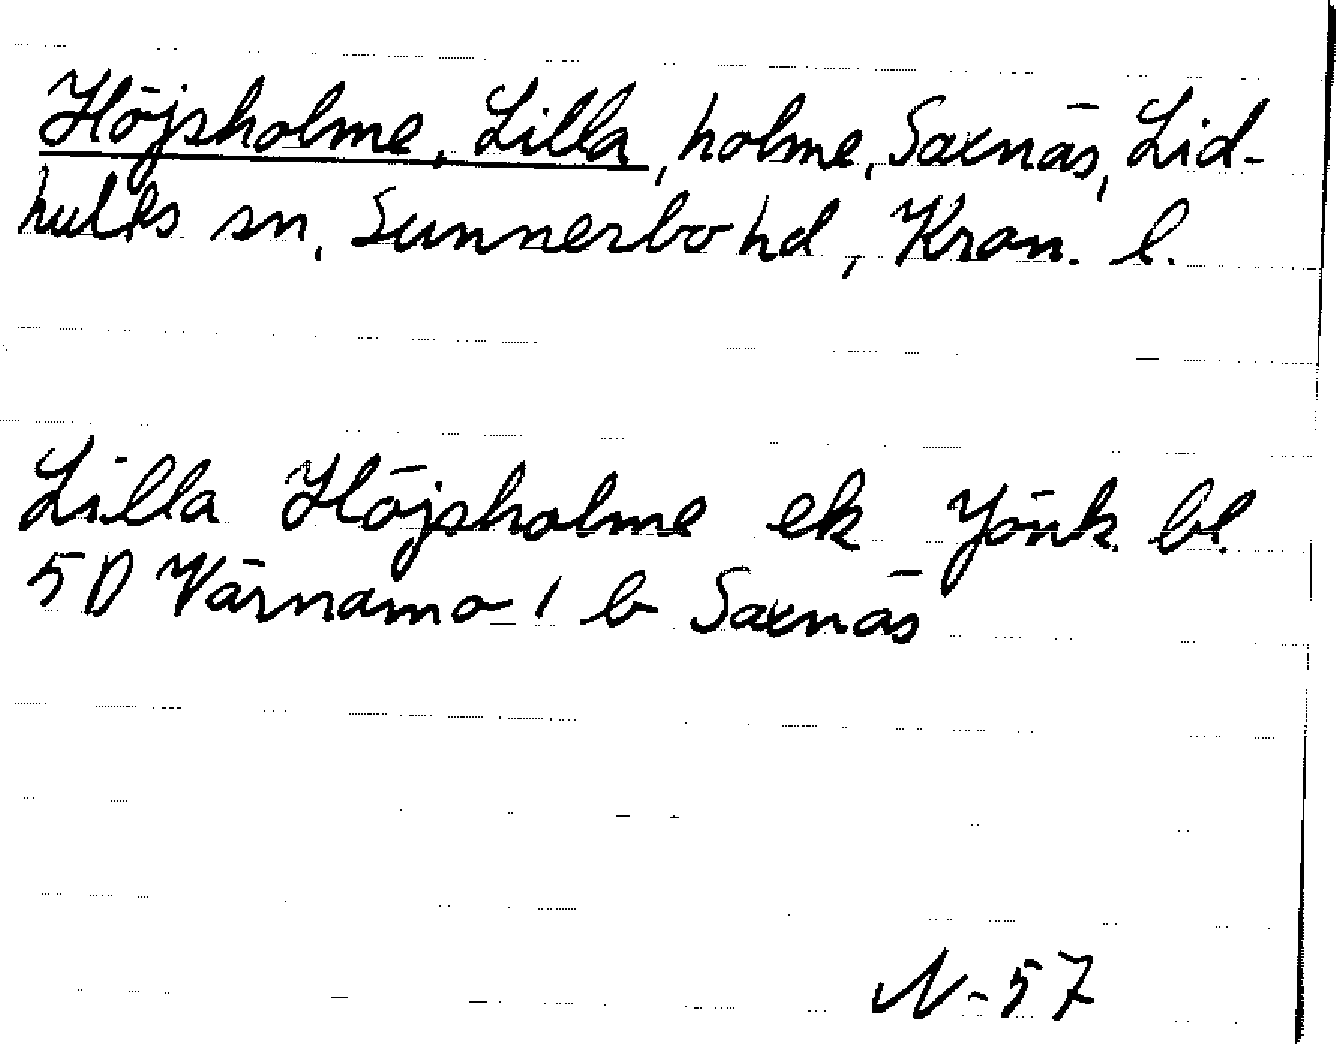 Höjsholme, Lilla, holme, Saxnäs, Lid-
hults sn, Sunnerbo hd, Kron. l.
Lilla Höjsholme ek Jönk bl.
5D Värnamo 1 b Saxnäs
N-57